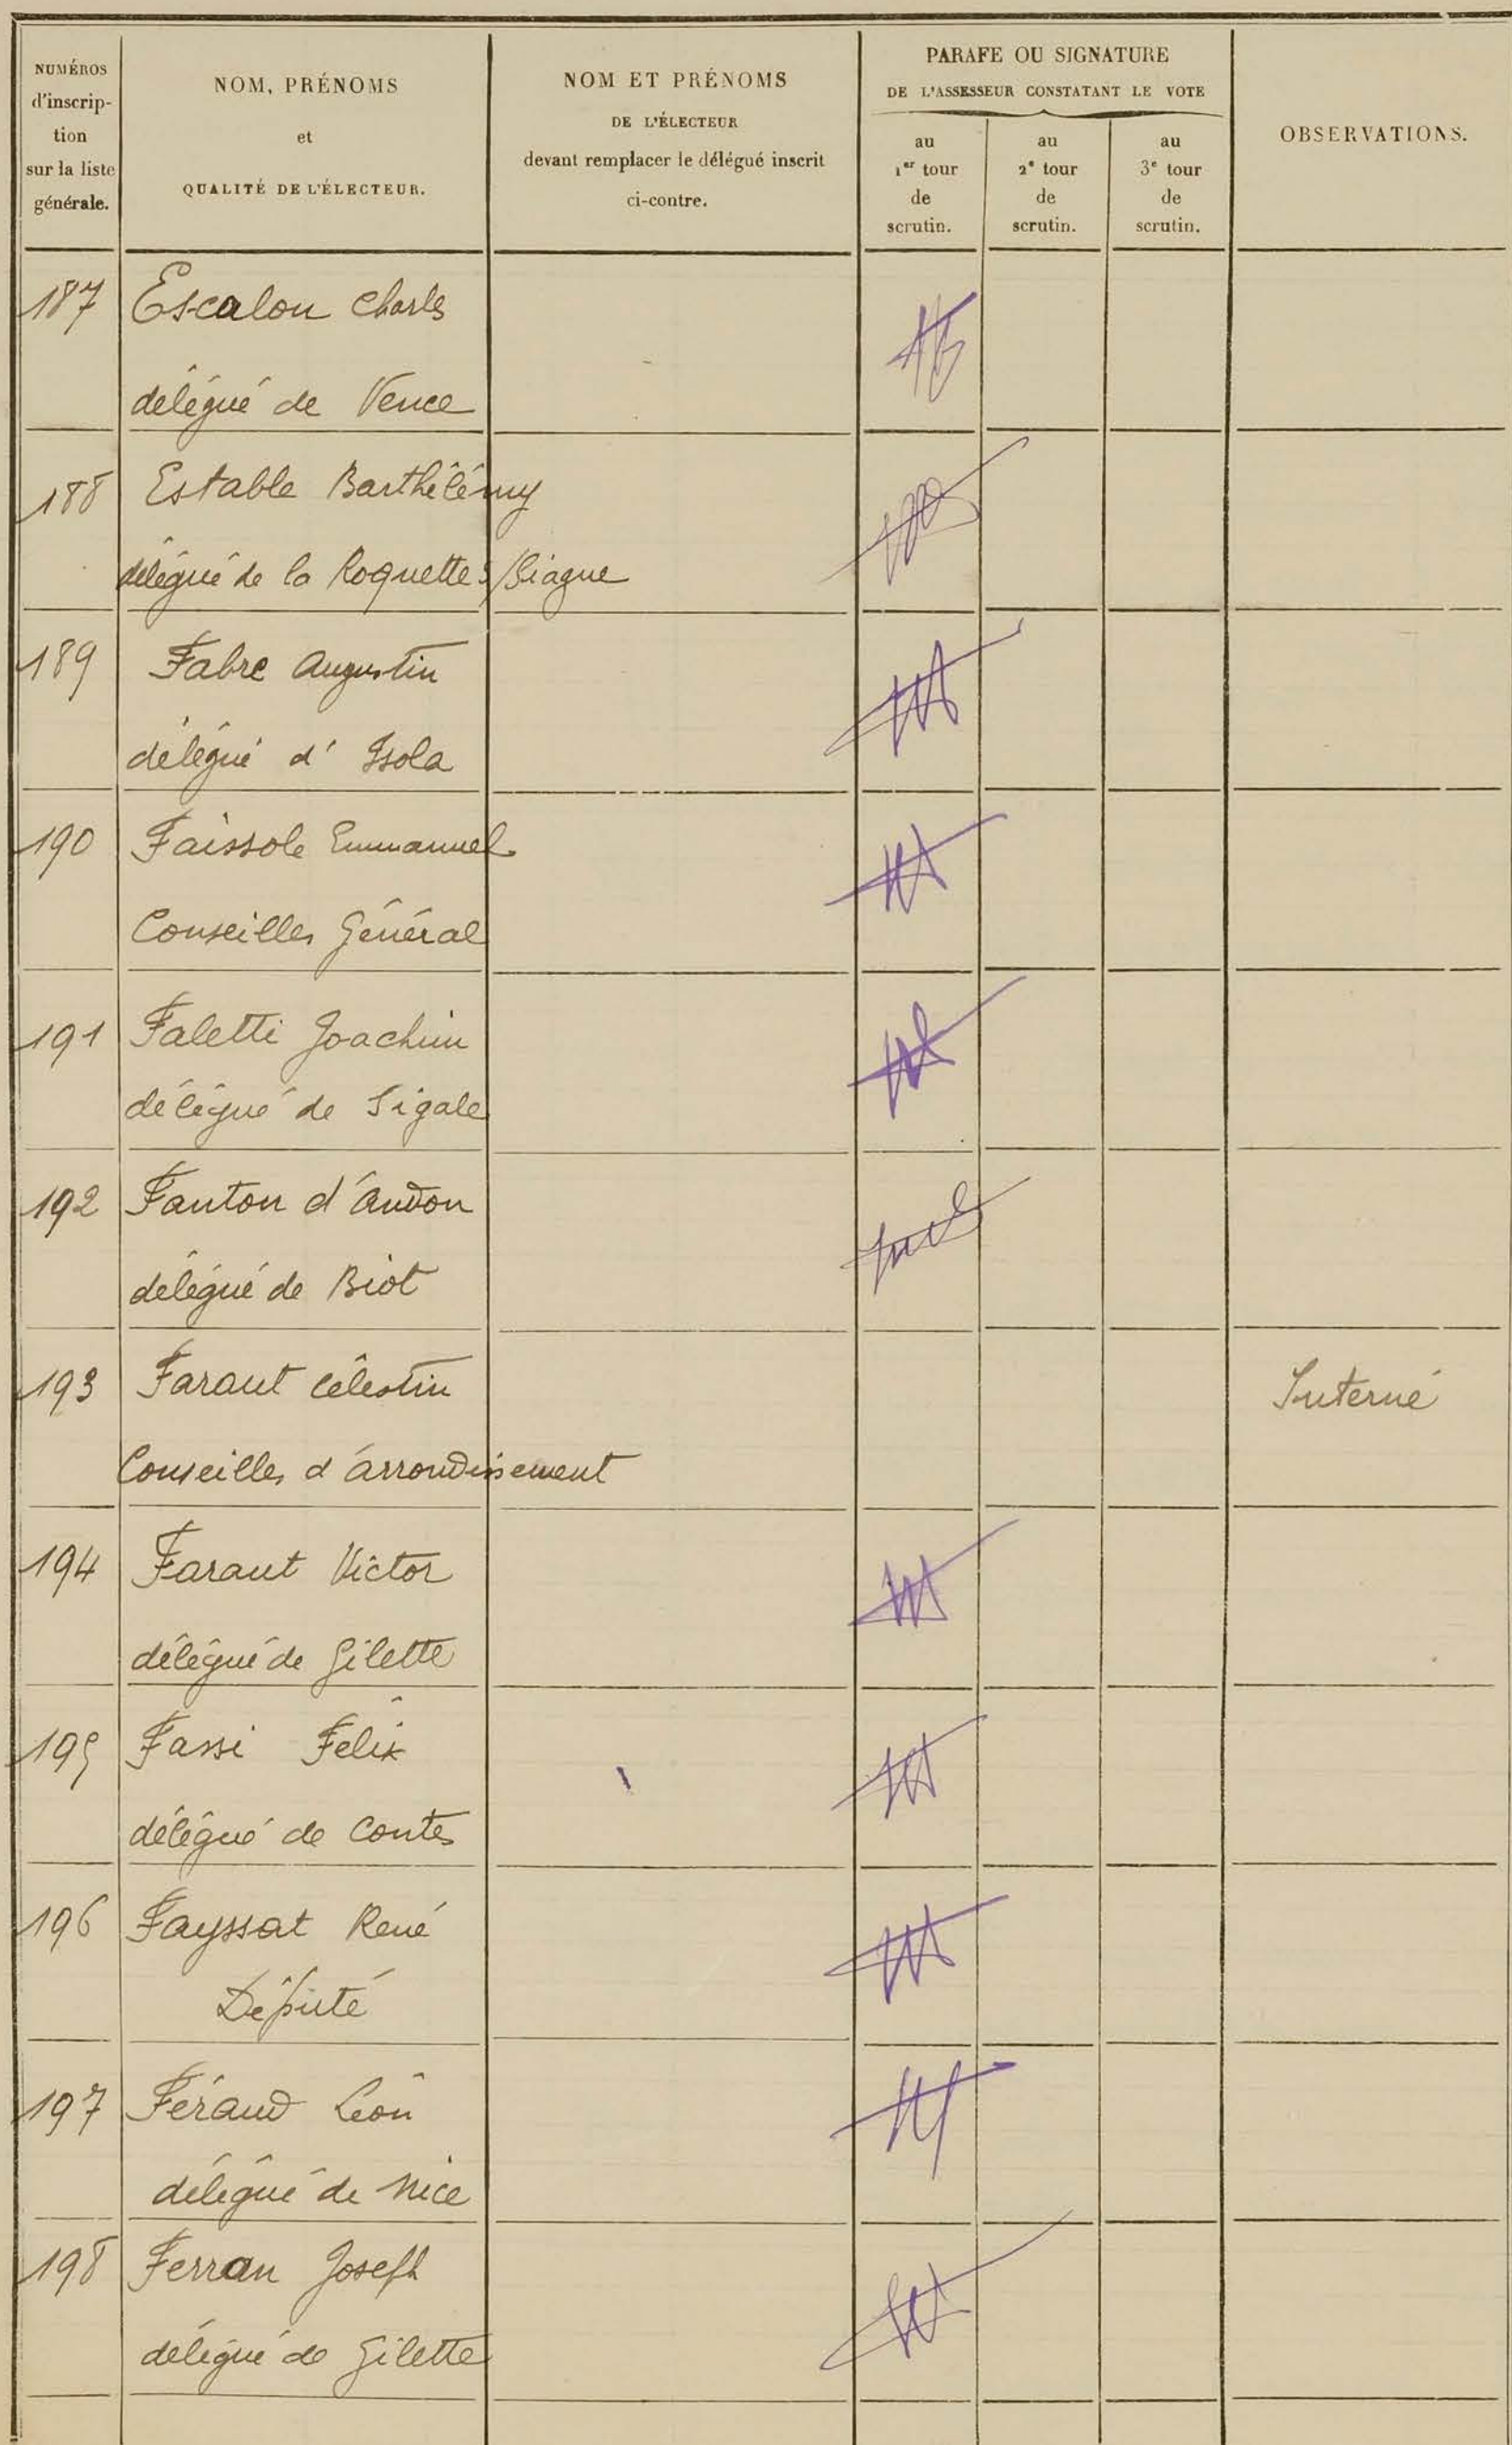 NUMÉROS
d'inscrip-
tion
sur la liste
générale.
NOM, PRÉNOMS
et
QUALITÉ DE L'ÉLECTEUR.
NOM ET PRÉNOMS
DE L'ÉLECTEUR
devant remplacer le délégué inscrit
ci-contre.
PARAFE OU SIGNATURE
DE L'ASSESSEUR CONSTATANT LE VOTE
au
1er tour
de
scrutin.
au
2e tour
de
scrutin.
au
3e tour
de
scrutin.
OBSERVATIONS.
187 Escalon Charles
délégué de Vence
188 Estable Barthélémy
délégué de la Roquette s/Siagne
189 Fabre Augustin
délégué d'Isola
190 Faissole Emmanuel
Conseiller Général
191 Faletti Joachim
délégué de Sigale
192 Fanton d'Andon
délégué de Biot
193 Faraut Célestin Interné
Conseiller d'arrondissement
194 Faraut Victor
délégué de Gilette
195 Fassi Félix
délégué de Contes
196 Fayssat René
Député
197 Féraud Léon
délégué de Nice
198 Ferran Joseph
délégué de Gilette